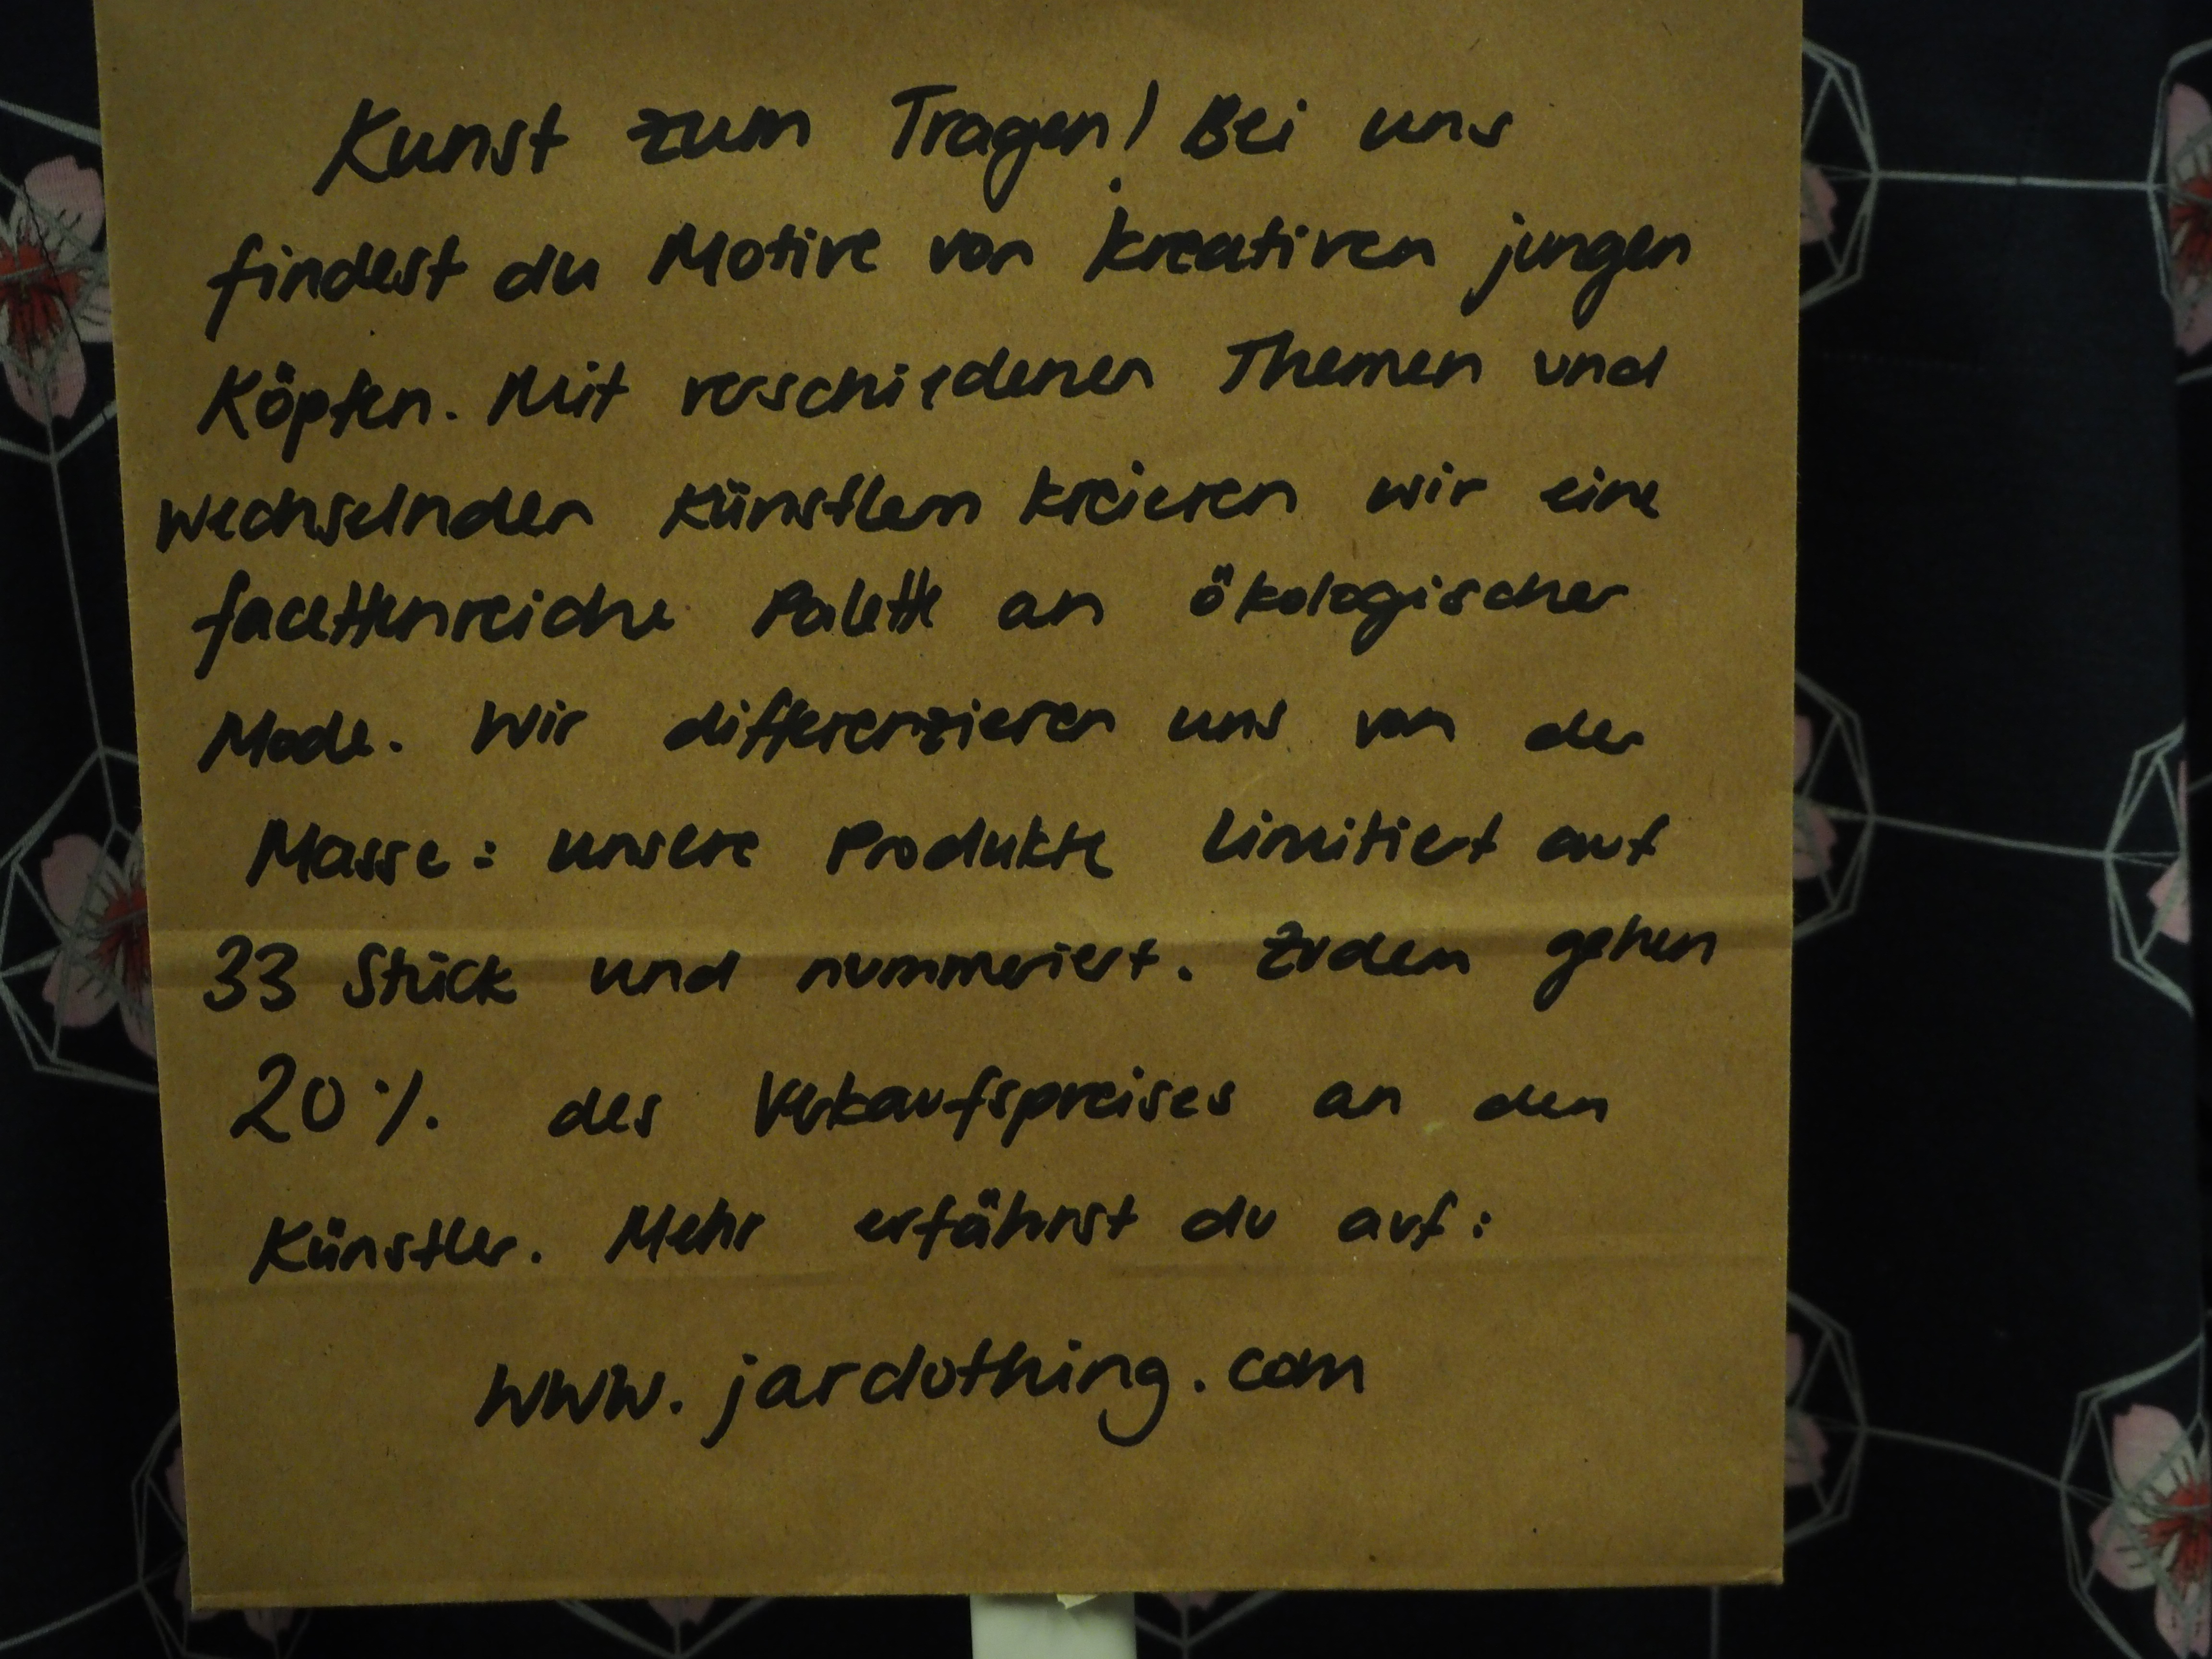 Kunst zum Tragen! Bei uns
findest du Motive von kreativen jungen
Köpfen. Mit verschiedenen Themen und
wechselnden Künstlern kreieren wir eine
facettenreiche Palette an ökologischer
Mode. Wir differenzieren uns von der
Masse: unsere Produkte limitiert auf
33 Stück und nummeriert. Zudem gehen
20% des Verkaufspreises an den
Künstler. Mehr erfährst du auf:
www.jarclothing.com